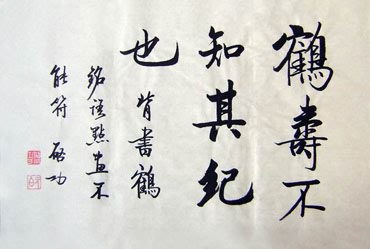 鶴壽不
知其紀
也背書鶴
銘誤點畫不
能符 啓功